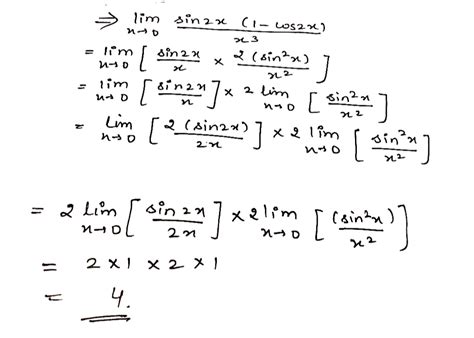 ⇒ lim x→0 sin2x (1 - cos2x) / x³
= lim x→0 [ sin2x / x × 2 (sin²x) / x² ]
= lim x→0 [ sin2x / x ] × 2 lim x→0 [ sin²x / x² ]
= Lim x→0 [ 2 (sin2x) / 2x ] × 2 lim x→0 [ sin²x / x² ]
= 2 Lim x→0 [ sin2x / 2x ] × 2 lim x→0 [ (sin²x) / x² ]
= 2 × 1 × 2 × 1
= 4.